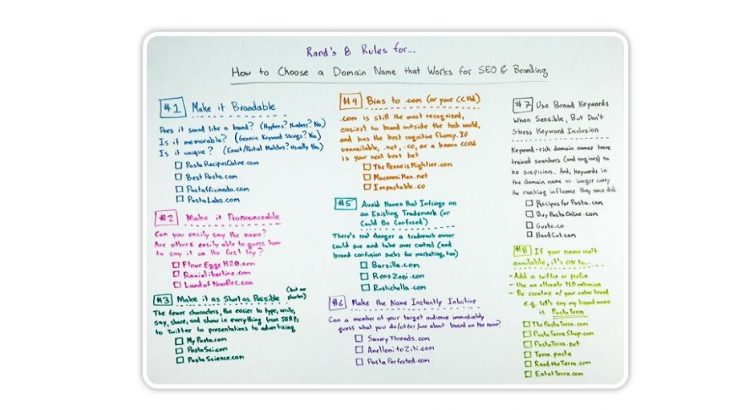 Rand's 8 Rules for...
How to Choose a Domain Name that Works for SEO & Branding
#1 Make it Brandable
Does it sound like a brand? (Hyphens? Numbers? No)
Is it memorable? (Generic Keyword Strings? No)
Is it unique? (Exact/Partial Matches? Usually No)
PastaRecipesOnline.com
BestPasta.com
Pastafficiando.com
PastaLabs.com
#2 Make it Pronounceable
Can you easily say the name?
Are others easily able to guess how
to say it on the first try?
FlourEggsH20.com
Raviolibertine.com
LandofNoodles.com
#3 Make it as Short as Possible (but no shorter)
The fewer characters, the easier to type, write,
say, share, and show in everything from SERPs
to Twitter to presentations to advertising
MyPasta.com
PastaSci.com
PastaScience.com
#4 Bias to .com (or your CCTLD)
.com is still the most recognized,
easiest to brand outside the tech world,
and has the best cognitive fluency. If
unavailable, .net, .co, or a known ccTLD
is your next best bet
ThePenneisMightier.com
MacaroniMan.net
Impastable.co
#5 Avoid Names that Infringe on
an Existing Trademark (or
Could Be Confused)
There's real danger a trademark owner
could sue and take over control (and
brand confusion sucks for marketing, too)
Barzilla.com
RonsZoni.com
Rustichella.com
#6 Make the Name Instantly Intuitive
Can a member of your target audience immediately
guess what you do/offer/are about based on the name?
SavoryThreads.com
AnellonitoZiti.com
PastaPerfected.com
#7 Use Broad Keywords
When Sensible, But Don't
Stress Keyword Inclusion
Keyword-rich domain names have
trained searchers (and engines) to
be suspicious. And, keywords in
the domain name no longer carry
the ranking influence they once did.
RecipesforPasta.com
BuyPastaOnline.com
Gusto.co
HandCut.com
#8 If your name isn't
available, it's OK to...
- Add a suffix or prefix
- Use an alternate TLD extension
- Be creative w/ your extra brand
e.g. let's say my brand name
is PastaTerra
ThePastaTerra.com
PastaTerraShop.com
PastaTerra.net
Terra.pasta
ReadtheTerra.com
EatatTerra.com